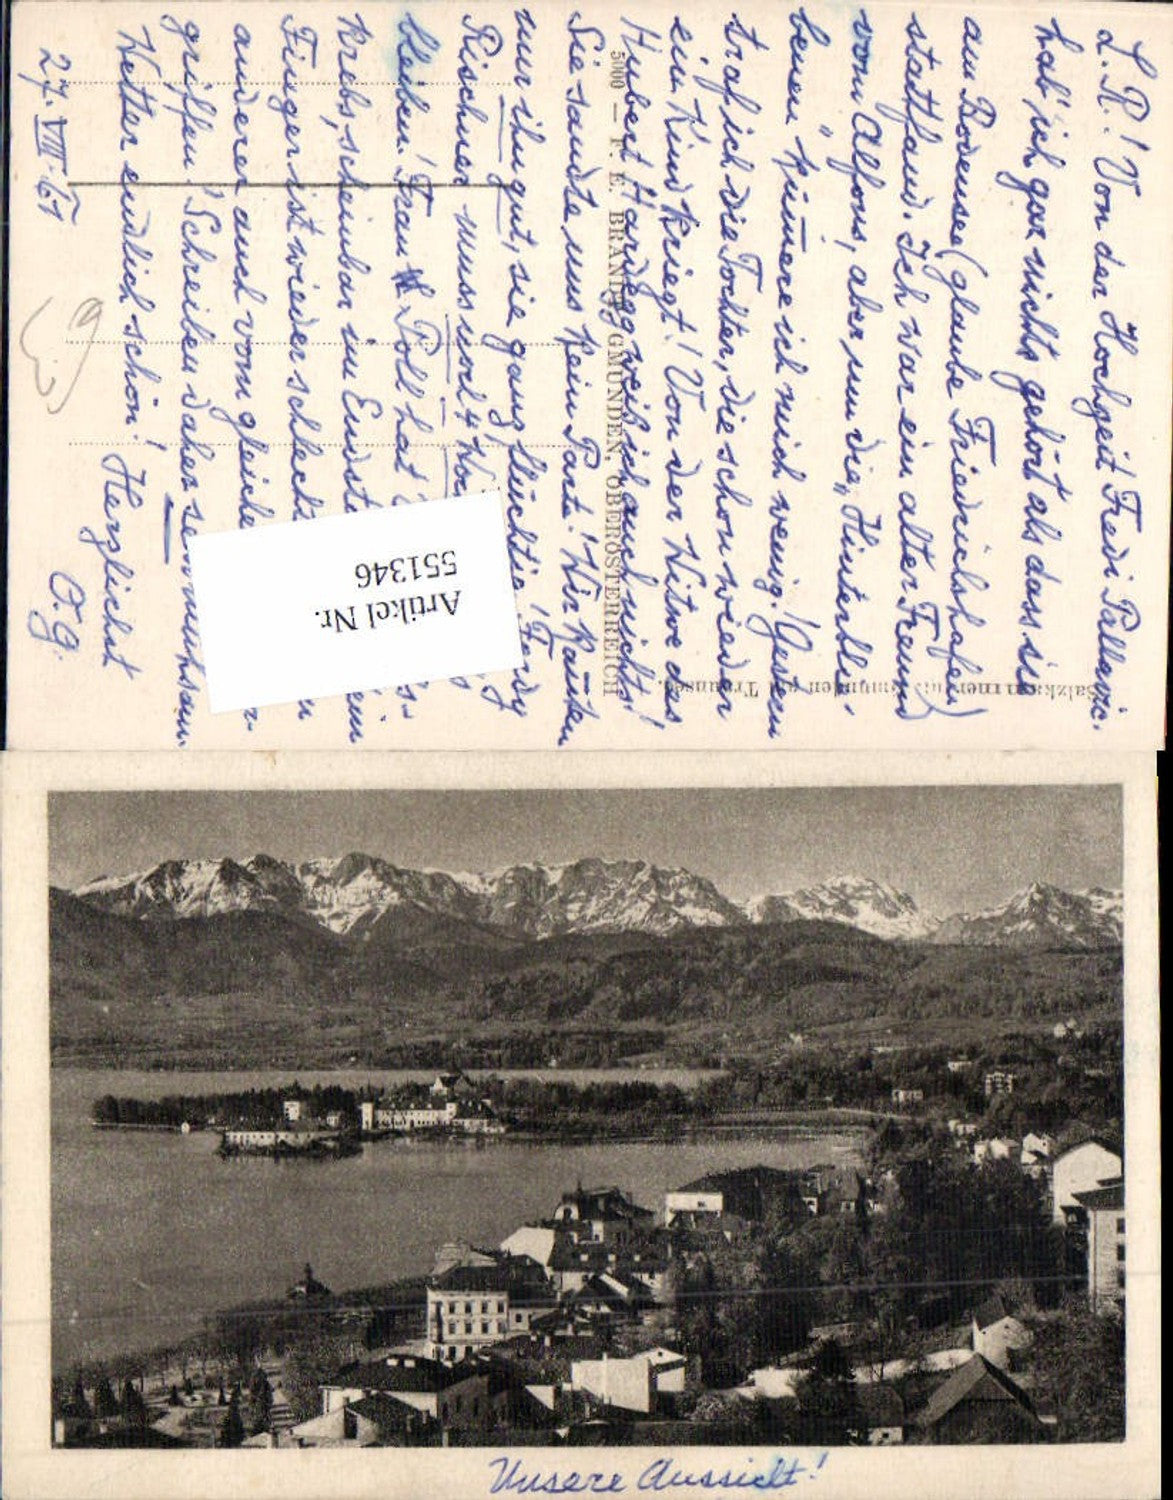 L. R.! Von der Hochzeit Fredi Pallavic.
hab' ich gar nichts gehört als dass sie
am Bodensee (glaube Friedrichshafen)
stattfand. Ich war ein alter Freund
vom Alfons, aber um die „Hinterblie-
benen" kümmere ich mich wenig. Gestern
traf ich die Tochter, die schon wieder
ein Kind kriegt! Von der Witwe des
Hubert Hardegg weiß ich auch nichts!
Sie sandte uns kein Parte! Wir kannten
nur ihn gut, sie ganz flüchtig! Ferdy
Rischner muss noch 4
bleiben! Frau Poll hat
krebs, scheinbar im Endst
Finger ist wieder schlecht
anderer auch vom gleichen
griffen! Schreiben daher sehr mühsam.
Wetter endlich schön! Herzlichst
27. VII. 61 O. G.
5000 — F. E. BRANDT, GMUNDEN, OBERÖSTERREICH
Salzkammergut: Gmunden am Traunsee.
Artikel Nr.
551346
Unsere Aussicht!